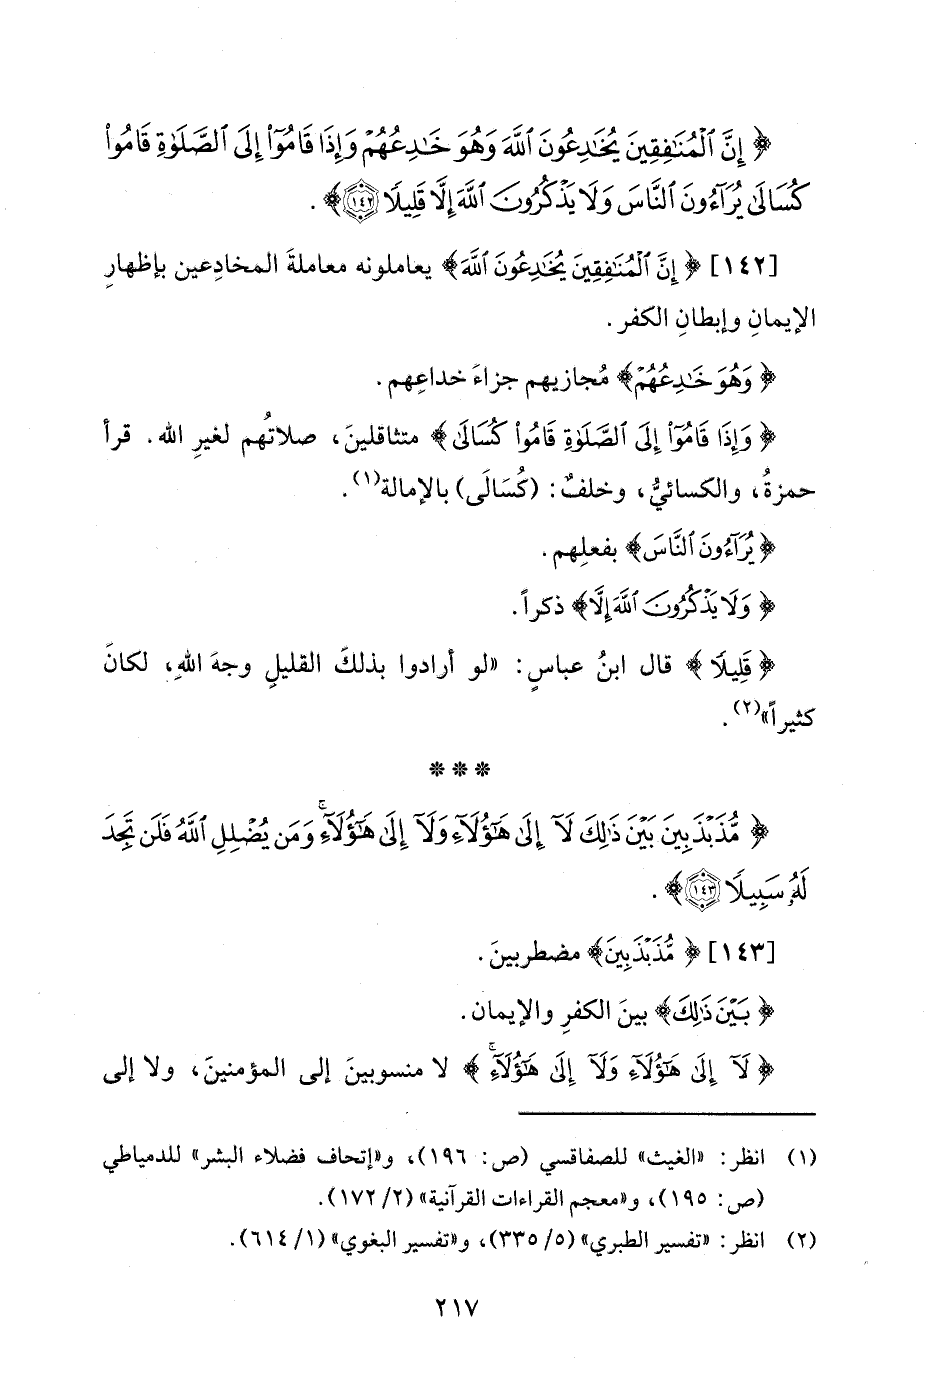 ﴿ إِنَّ ٱلْمُنَٰفِقِينَ يُخَٰدِعُونَ ٱللَّهَ وَهُوَ خَٰدِعُهُمْ وَإِذَا قَامُوٓا۟ إِلَى ٱلصَّلَوٰةِ قَامُوا۟
كُسَالَىٰ يُرَآءُونَ ٱلنَّاسَ وَلَا يَذْكُرُونَ ٱللَّهَ إِلَّا قَلِيلًا ١٤٢ ﴾ .
[١٤٢] ﴿ إِنَّ ٱلْمُنَٰفِقِينَ يُخَٰدِعُونَ ٱللَّهَ﴾ يعاملونه معاملةَ المخادِعين بإظهارِ
الإيمانِ وإبطانِ الكفر .
﴿ وَهُوَ خَٰدِعُهُمْ﴾ مُجازيهم جزاءَ خداعِهم .
﴿ وَإِذَا قَامُوٓا۟ إِلَى ٱلصَّلَوٰةِ قَامُوا۟ كُسَالَىٰ﴾ متثاقلينَ، صلاتُهم لغيرِ الله. قرأ
حمزةُ، والكسائيُّ، وخلفٌ: (كُسَالَى) بالإمالة(١).
﴿ يُرَآءُونَ ٱلنَّاسَ﴾ بفعلِهم.
﴿ وَلَا يَذْكُرُونَ ٱللَّهَ إِلَّا﴾ ذكراً.
﴿ قَلِيلًا ﴾ قال ابنُ عباسٍ: «لو أرادوا بذلكَ القليلِ وجهَ اللهِ، لكانَ
كثيراً»(٢).
❊ ❊ ❊
﴿ مُّذَبْذَبِينَ بَيْنَ ذَٰلِكَ لَآ إِلَىٰ هَٰٓؤُلَآءِ وَلَآ إِلَىٰ هَٰٓؤُلَآءِ ۚ وَمَن يُضْلِلِ ٱللَّهُ فَلَن تَجِدَ
لَهُۥ سَبِيلًا ١٤٣ ﴾ .
[١٤٣] ﴿ مُّذَبْذَبِينَ﴾ مضطربينَ.
﴿ بَيْنَ ذَٰلِكَ﴾ بينَ الكفرِ والإيمان.
﴿ لَآ إِلَىٰ هَٰٓؤُلَآءِ وَلَآ إِلَىٰ هَٰٓؤُلَآءِ ۚ ﴾ لا منسوبينَ إلى المؤمنينَ، ولا إلى
(١) انظر: «الغيث» للصفاقسي (ص: ١٩٦)، و«إتحاف فضلاء البشر» للدمياطي
(ص: ١٩٥)، و«معجم القراءات القرآنية» (٢/ ١٧٢).
(٢) انظر: «تفسير الطبري» (٥/ ٣٣٥)، و«تفسير البغوي» (١/ ٦١٤).
٢١٧